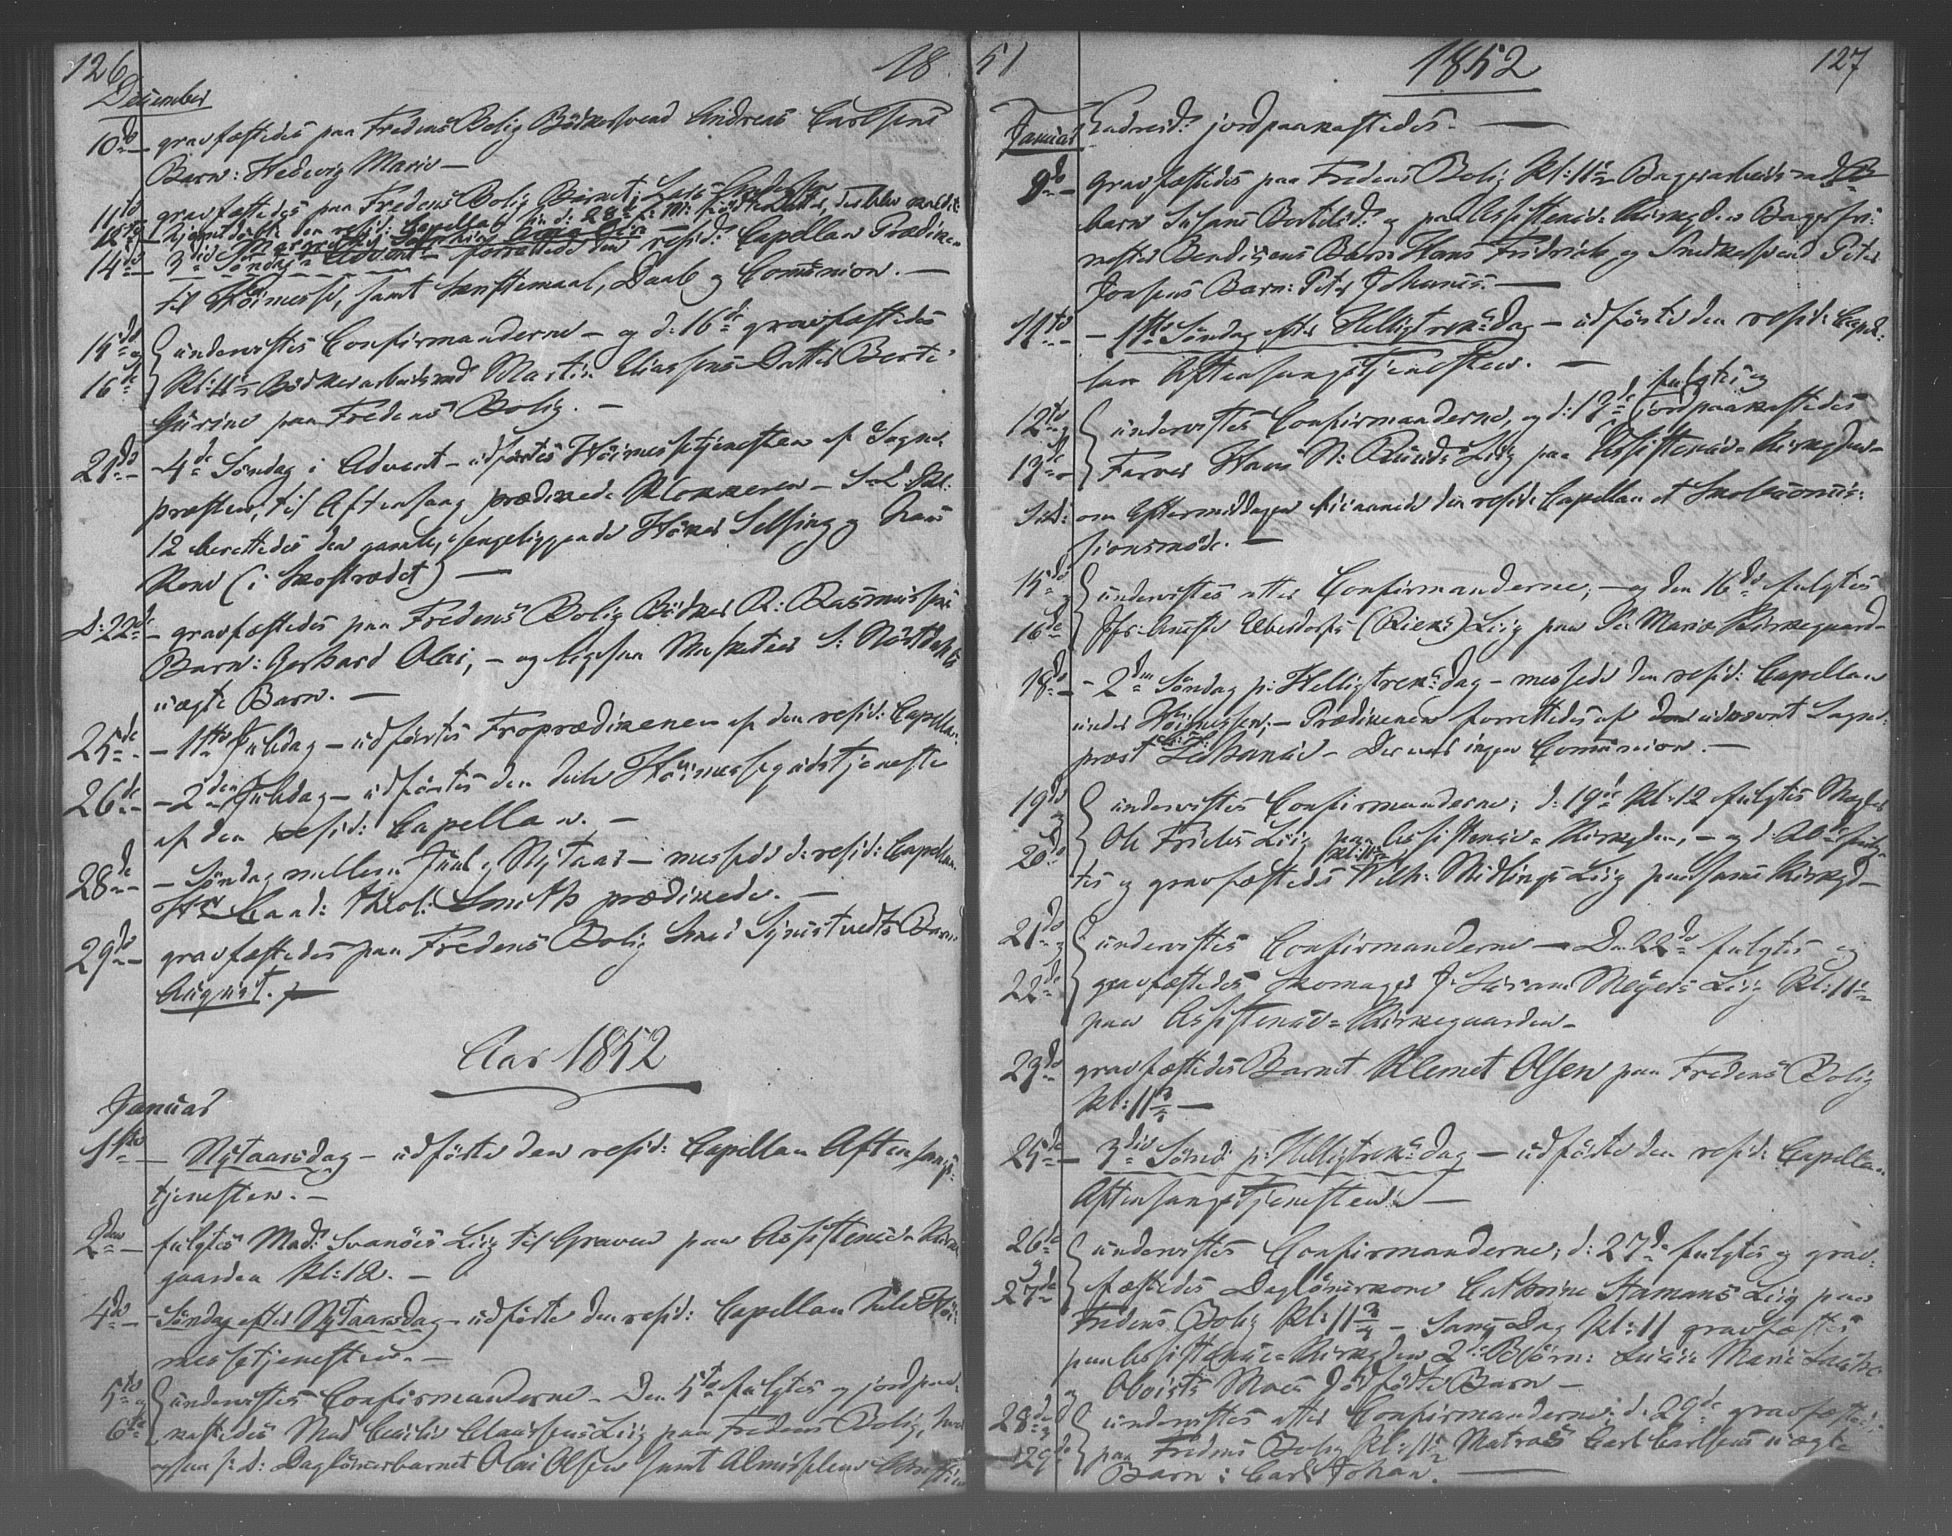 126
18
December
10de gravfæstedes paa Fredens Bolig Bödkersvend Andreas Carlsens
Barn: Hedevig Marie —
11te gravfæstedes paa Fredens Bolig Barnet:
14de 3die Söndag i Advent — forrettede den resid: Capellan Prædiken
til Höimesse, samt Skriftemaal, Daab og Comunion. —
15de og underviistes Confirmanderne — og d: 16de gravfæstedes
16de Kl: 11½ Bödkerarbeidsmd Martin Eliassens Datter Berte
Gurine paa Fredens Bolig. —
21de — 4de Söndag i Advent — udförtes Höimessetjenesten af Sogne-
præsten, til Aftensang prædikede Klokkeren — S. D. Kl:
12 berettedes den gamle, sengeliggende Höker Selsing og hans
Kone (i Skostrædet) —
D: 22de — gravfæstedes paa Fredens Bolig Bödker R: Rasmussens
Barn: Gerhard Olai, — og ligesaa Musketeer S: Nörstdahls
uægte Barn. —
25de — 1ste Juledag — udförtes Froprædikenen af den resid: Capellan.
26de — 2den Juledag — udförtes den hele Höimessegudstjeneste
af den resid: Capellan. —
28de — Söndag mellem Juul og Nytaar — messede d: resid: Capellan.
Hr Cand: theol: Smith prædikede. —
29de gravfæstedes paa Fredens Bolig Smed Barn
August. —
Aar 1852
Januar
1ste — Nytaarsdag — udförte den resid: Capellan Aftensangs-
tjenesten. —
2den — fulgtes Mad: Svanöes Liig til Graven paa Assistents Kirke-
gaarden Kl: 12. —
4de — Söndag efter Nytaarsdag — udförte den resid: Capellan hele Höi-
messetjenesten. —
5te og underviistes Confirmanderne — Den 5te fulgtes og jordpaa-
6te kastedes Mad Cecilie Claussens Liig paa Fredens Bolig, hvor
ogsaa s: d: Daglönnerbarnet Olai Olsen samt Almisselem
51
1852
127
Januar jordpaakastedes. —
9de — Gravfæstedes paa Fredens Bolig Kl: 11½ Bagerarbeidsmands
barn Susanne og paa Assistents Kirkegden Bagersvi-
Bendixens Barn: Hans Fredrick og Snedkersvend Peter
Jonsens Barn: Peter Johannes. —
11te — 1ste Söndag efter Helligtrekdag — udförte den resid: Capel-
lan Aftensangstjenesten. —
12te og underviistes Confirmanderne, og d: 13de fulgtes og jordpaakastedes
13de Farver Hans N: Liig paa Assistents Kirkegden —
S: D: om Eftermiddagen bivaanede den resid: Capellan et Skolecomis-
sionsmöde. —
15de og underviistes atter Confirmanderne, — og den 16de fulgtes
16de Jfr: Anette (Riens) Liig paa St: Mariæ Kirkegaard —
18de — 2den Söndag p: Helligtrekdag — messede den resid: Capellan
under Höimessen; — Prædikenen forrettedes af udnævnt Sogne-
præst — Der var ingen Comunion. —
19de og underviistes Confirmanderne; d: 19de Kl: 12 fulgtes Mægler
20de Ole Frieles Liig paa Assistents Kirkegden, — og d: 20de fulg-
tes og gravfæstedes Kl: 11½ Liig paa samme Kirkegd —
21de og underviistes Confirmanderne — Den 22de fulgtes og
22de gravfæstedes Skomager J: Meyers Liig Kl: 11½
paa Assistents Kirkegaarden —
23de gravfæstedes Barnet Klemet Olsen paa Fredens Bolig
Kl: 11¾ —
25de — 3die Sönd: p: Helligtrekdag — udförte den resid: Capellan
Aftensangstjenesten. —
26de og underviistes Confirmanderne; d: 27de fulgtes og grav-
27de fæstedes Daglönnerkone Cathrine Liig paa
Fredens Bolig Kl: 11¾ — Samme Dag Kl: 11 gravfæstes
paa Assistents Kirkegden 2de Börn: Marie
dödfödte Barn —
28de og underviistes atter Confirmanderne; d: 29de gravfæstedes
29de paa Fredens Bolig Kl: 11½ Matros Carl Carlsens uægte
Barn: Carl Johan. —